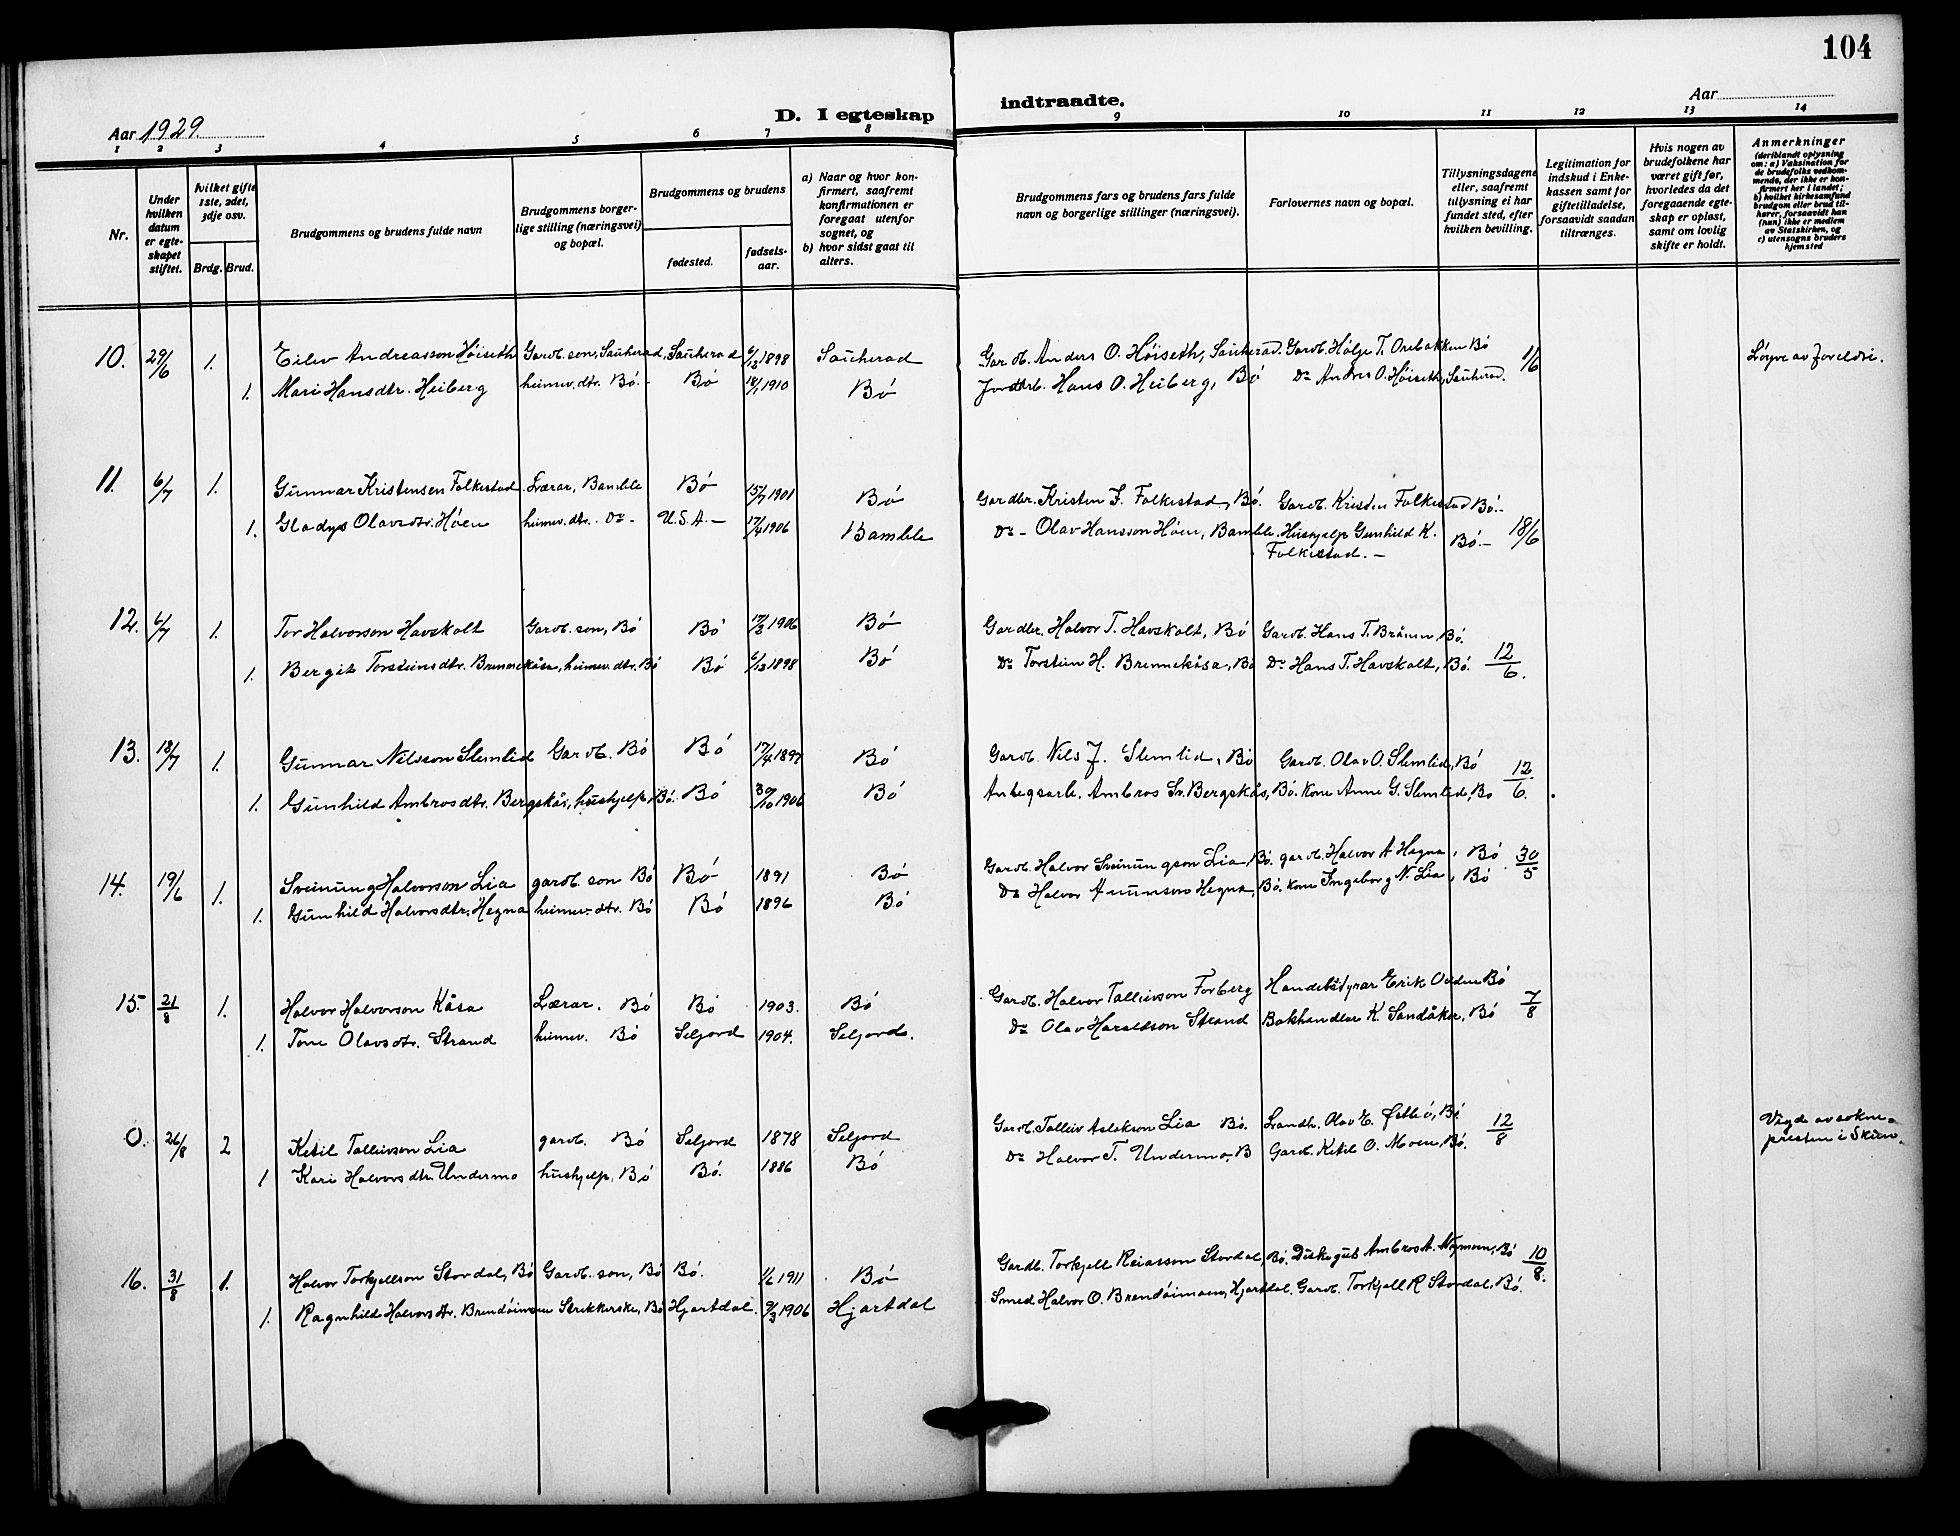 104
Aar 1929.
D. I egteskap indtraadte.
Aar
1 2 3 4 5 6 7 8 9 10 11 12 13 14
Nr.
Under hvilken datum er egteskapet stiftet.
hvilket gifte 1ste, 2det, 3dje osv.
Brdg. Brud.
Brudgommens og brudens fulde navn
Brudgommens borgerlige stilling (næringsvei) og bopæl.
Brudgommens og brudens
fødested.
fødselsaar.
a) Naar og hvor konfirmert, saafremt konfirmationen er foregaat utenfor sognet, og
b) hvor sidst gaat til alters.
Brudgommens fars og brudens fars fulde navn og borgerlige stillinger (næringsvei).
Forlovernes navn og bopæl.
Tillysningsdagene eller, saafremt tillysning ei har fundet sted, efter hvilken bevilling.
Legitimation for indskud i Enkekassen samt for giftetilladelse, forsaavidt saadan tiltrænges.
Hvis nogen av brudefolkene har været gift før, hvorledes da det foregaaende egteskap er opløst, samt om lovlig skifte er holdt.
Anmerkninger
(deriblandt oplysning om: a) Vaksination for de brudefolks vedkommende, der ikke er konfirmert her i landet; b) hvilket kirkesamfund brudgom eller brud tilhører, forsaavidt han (hun) ikke er medlem av Statskirken, og c) utensogns bruders hjemsted
10. 29/6 1. Eilev Andreasson Høiseth Gardb. son, Sauherad, Sauherad 6/12 1898 Sauherad Gardb. Anders O. Høiseth, Sauherad. Gardb. Hølje T. Orebakken Bø 1/6 Løyve av foreldri.
1. Mari Hansdtr. Heiberg heimev. dtr. Bø - Bø 18/1 1910 Bø Jorddrb. Hans O. Heiberg, Bø Do Anders O. Høiseth, Sauherad.
11. 6/7 1. Gunnar Kristensen Folkestad Lærar, Bamble Bø 15/7 1901 Bø Gardbr. Kristen J. Folkestad, Bø. Gardb. Kristen Folkestad Bø.-
1. Gladys Olavsdtr. Høen heimev. dtr. Do - U.S.A. - 17/4 1906 Bamble Do - Olav Hansson Høen, Bamble. Hushjelp Gunhild K. Folkestad. - Bø. - 18/6
12. 6/7 1. Tor Halvorson Havskolt Gardb. son, Bø Bø 17/3 1906 Bø Gardbr. Halvor T. Havskolt, Bø Gardb. Hans T. Bråten, Bø.
1. Bergit Torsteinsdtr. Brennekåsa, heimev. dtr. Bø Bø 6/12 1898 Bø Do Torstein H. Brennekåsa, Bø Do Hans T. Havskolt, Bø. 12/6.
13. 18/7 1. Gunnar Nilsson Slemlid Gardb. Bø Bø 17/4 1897 Bø Gardb. Nils J. Slemlid, Bø Gardb. Olav O. Slemlid, Bø 12/6.
1. Gunhild Ambrosdtr. Bergskås, hushjelp, Bø. Bø 30/10 1906 Bø Anlegsarb. Ambros Sv. Bergskås, Bø. Kone Anne G. Slemlid, Bø
14. 19/6 1. Sveinung Halvorson Lia gardb. son Bø Bø 1891 Bø Gardb. Halvor Sveinungson Lia, Bø. gardb. Halvor A Hegna, Bø 30/5
1. Gunhild Halvorsdtr. Hegna heimev. dtr. Bø Bø 1896 Bø Do Halvor Amunson Hegna, Bø. Kone Ingeborg N. Lia, Bø
15. 21/8 1. Halvor Halvorson Kåsa Lærar. Bø Bø 1903. Bø Gardb. Halvor Talleivson Forberg Handelstyrar Erik Odden Bø 7/8
1. Tone Olavsdtr. Strand heimev. Bø Seljord 1904. Seljord. Do Olav Haraldson Strand Bokhandlar K. Sandåker, Bø
0. 26/8 2 Ketil Talleivson Lia gardb. Bø Seljord 1878 Seljord Gardb. Talleiv Aslakson Lia Bø. Landh. Olav E. Østbø, Bø 12/8 Vigde av sokne-
presten i Skien.
1 Kari Halvorsdtr. Undermo hushjelp, Bø Bø. 1886 Bø Do Halvor T. Undermo, B Gardb. Ketil O. Moen, Bø.
16. 31/8 1. Halvor Torkjellson Stordal, Bø Gardb. son, Bø Bø. 1/6 1911 Bø Gardb. Torkjell Reiasson Stordal, Bø. Ambros A. Bø 10/8.
1. Ragnhild Halvorsdtr. Brendøimoen Strikkerske, Bø Hjartdal. 9/3 1906 Hjartdal Smed Halvor O. Brendøimoen, Hjartdal. Gardb. Torkjell R Stordal, Bø.